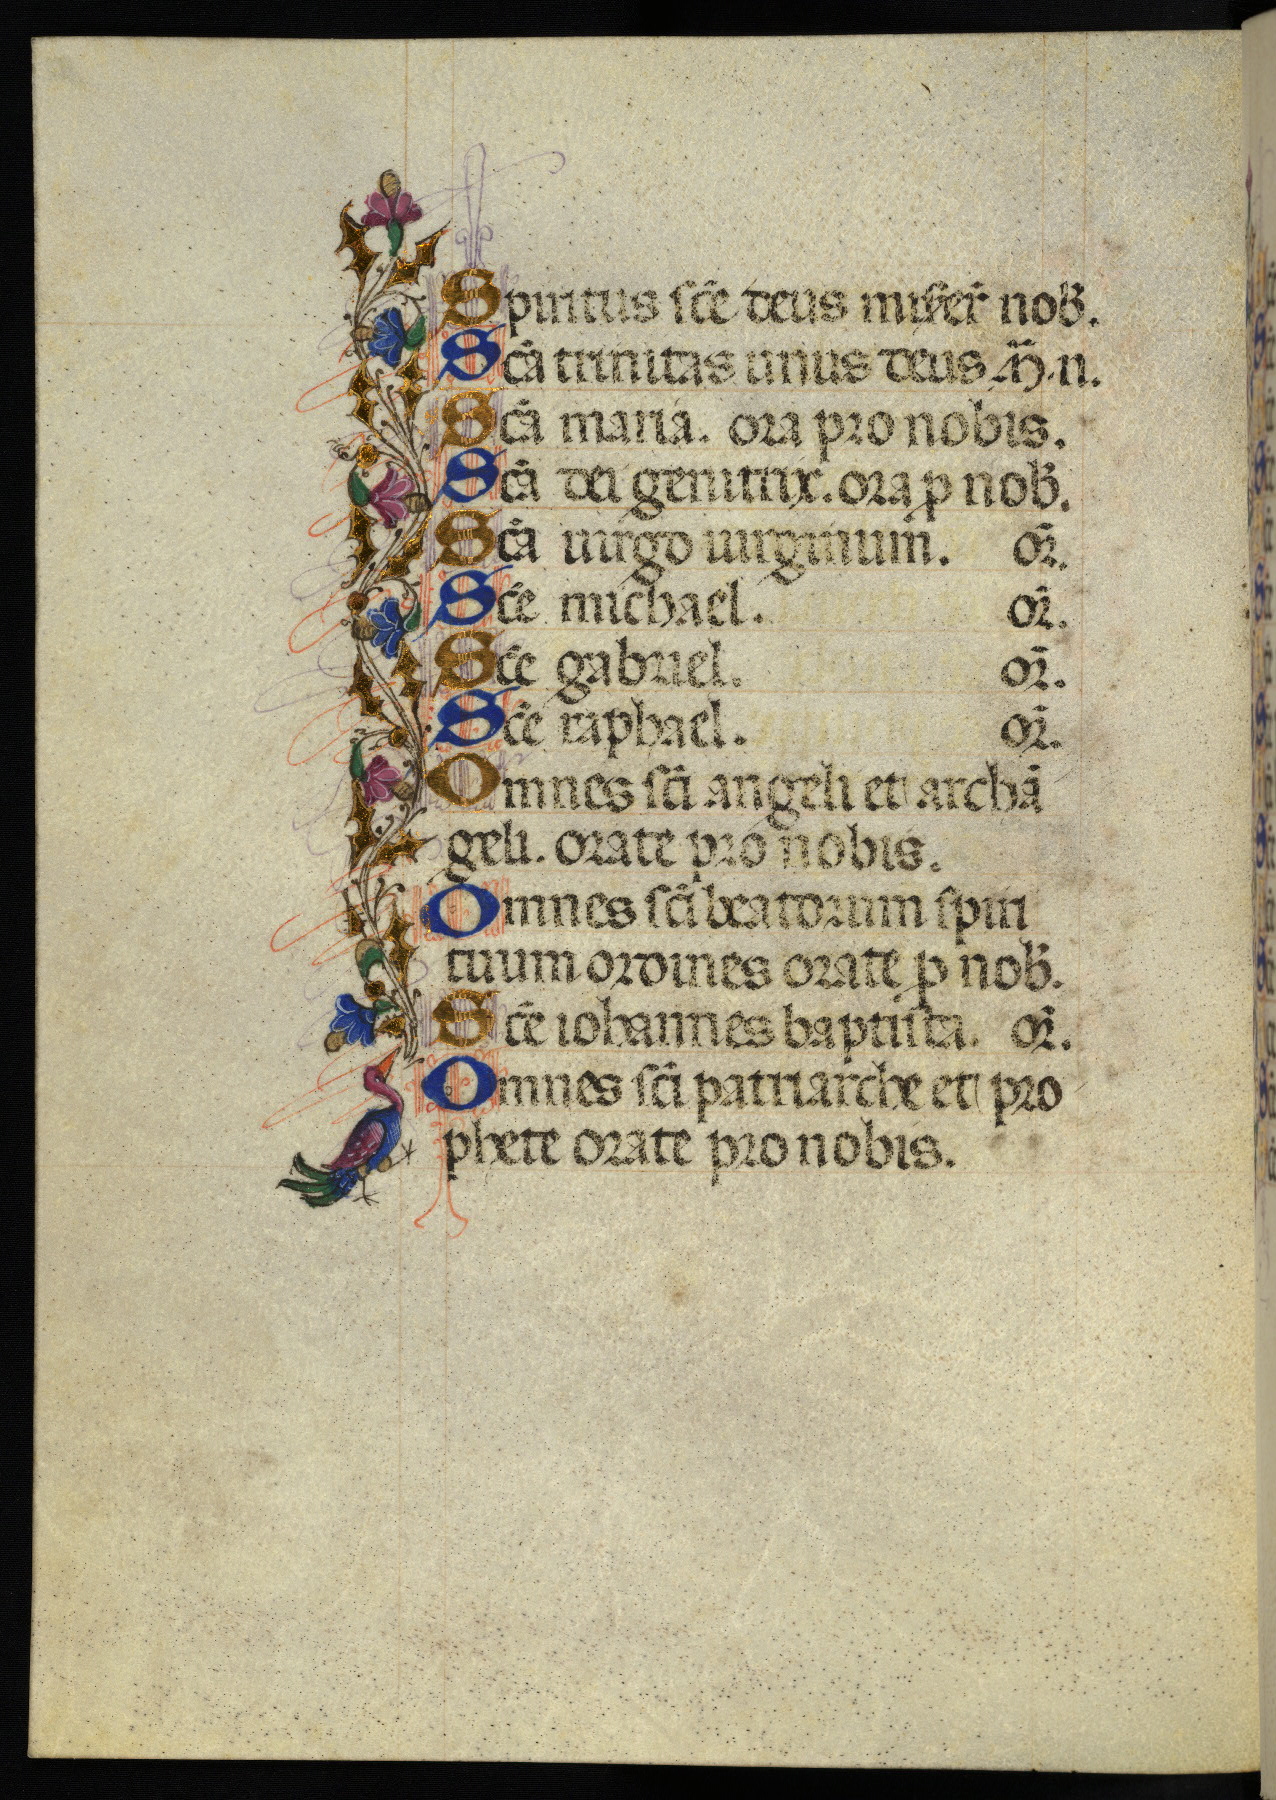 Spiritus sc̄e deus miser̄ nob̄.
Sc̄a trinitas unus deus M̄. n.
Sc̄a maria. ora pro nobis.
Sc̄a dei genitrix. ora ꝑ nob̄.
Sc̄a uirgo uirginum. or̄.
Sc̄e michael. or̄.
Sc̄e gabriel. or̄.
Sc̄e raphael. or̄.
Omnes sc̄i angeli et archā
geli. orate pro nobis.
Omnes sc̄i beatorum spiri
tuum ordines orate ꝑ nob̄.
Sc̄e iohannes baptista. or̄.
Omnes sc̄i patriarche et pro
phete orate pro nobis.